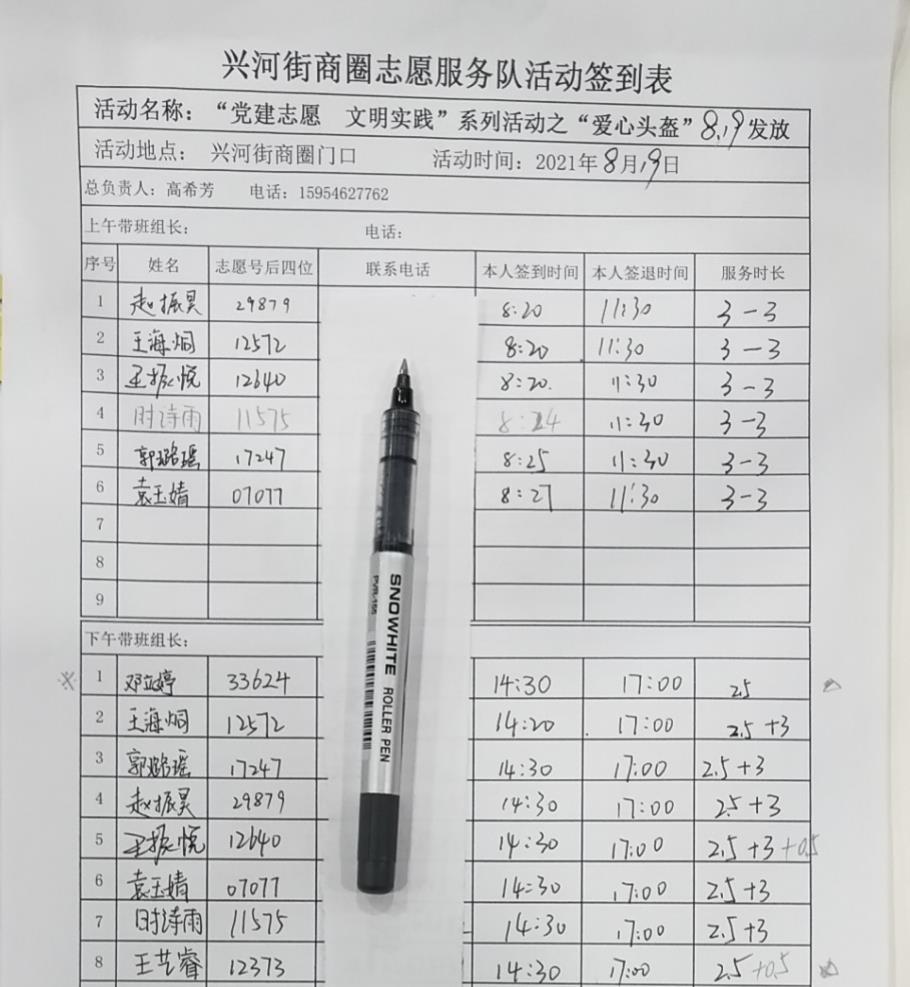 兴河街商圈志愿服务队活动签到表
活动名称：“党建志愿 文明实践”系列活动之“爱心头盔”8.19发放
活动地点： 兴河街商圈门口 活动时间：2021年8月19日
总负责人：高希芳 电话：15954627762
上午带班组长： 电话：
序号 姓名 志愿号后四位 联系电话 本人签到时间 本人签退时间 服务时长
1 赵振昊 29879 8:20 11:30 3-3
2 王海炯 12572 8:20 11:30 3-3
3 王振悦 12640 8:20. 11:30 3-3
4 时诗雨 11575 8:24 11:30 3-3
5 郭璐瑶 17247 8:25 11:30 3-3
6 袁玉婧 07077 8:27 11:30 3-3
7
8
9
下午带班组长：
1 邓立婷 33624 14:30 17:00 2.5
2 王海炯 12572 14:20 17:00 2.5+3
3 郭璐瑶 17247 14:30 17:00 2.5+3
4 赵振昊 29879 14:30 17:00 2.5+3
5 王振悦 12640 14:30 17:00 2.5+3+0.5
6 袁玉婧 07077 14:30 17:00 2.5+3
7 时诗雨 11575 14:30 17:00 2.5+3
8 王艺睿 12373 14:30 17:00 2.5+0.5
SNOWHITE ROLLER PEN
PVR-155